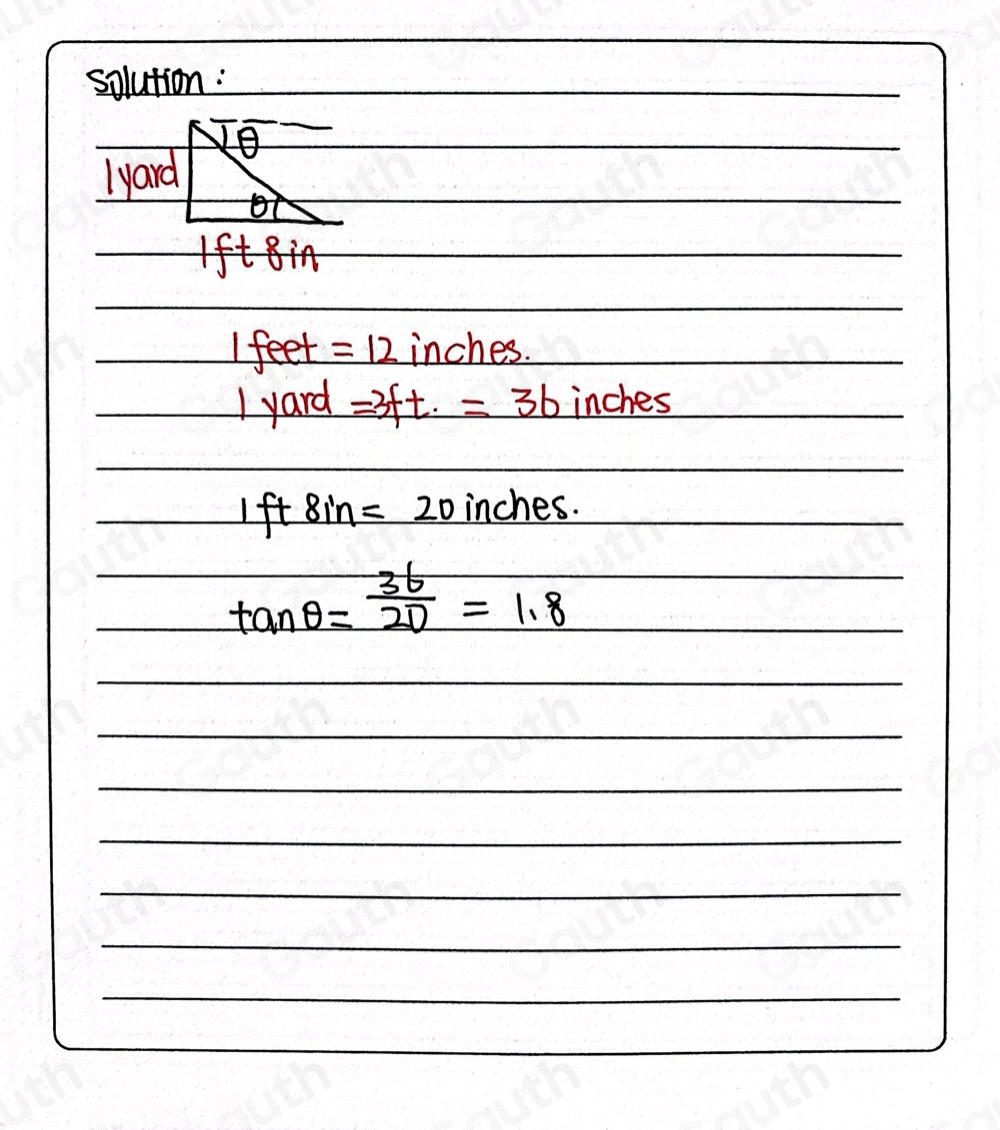 Solution :
θ
1 yard
θ
1ft 8in
1 feet = 12 inches.
1 yard =3ft. = 36 inches
1 ft 8in = 20 inches.
tan θ = 36/20 = 1.8
Gauth